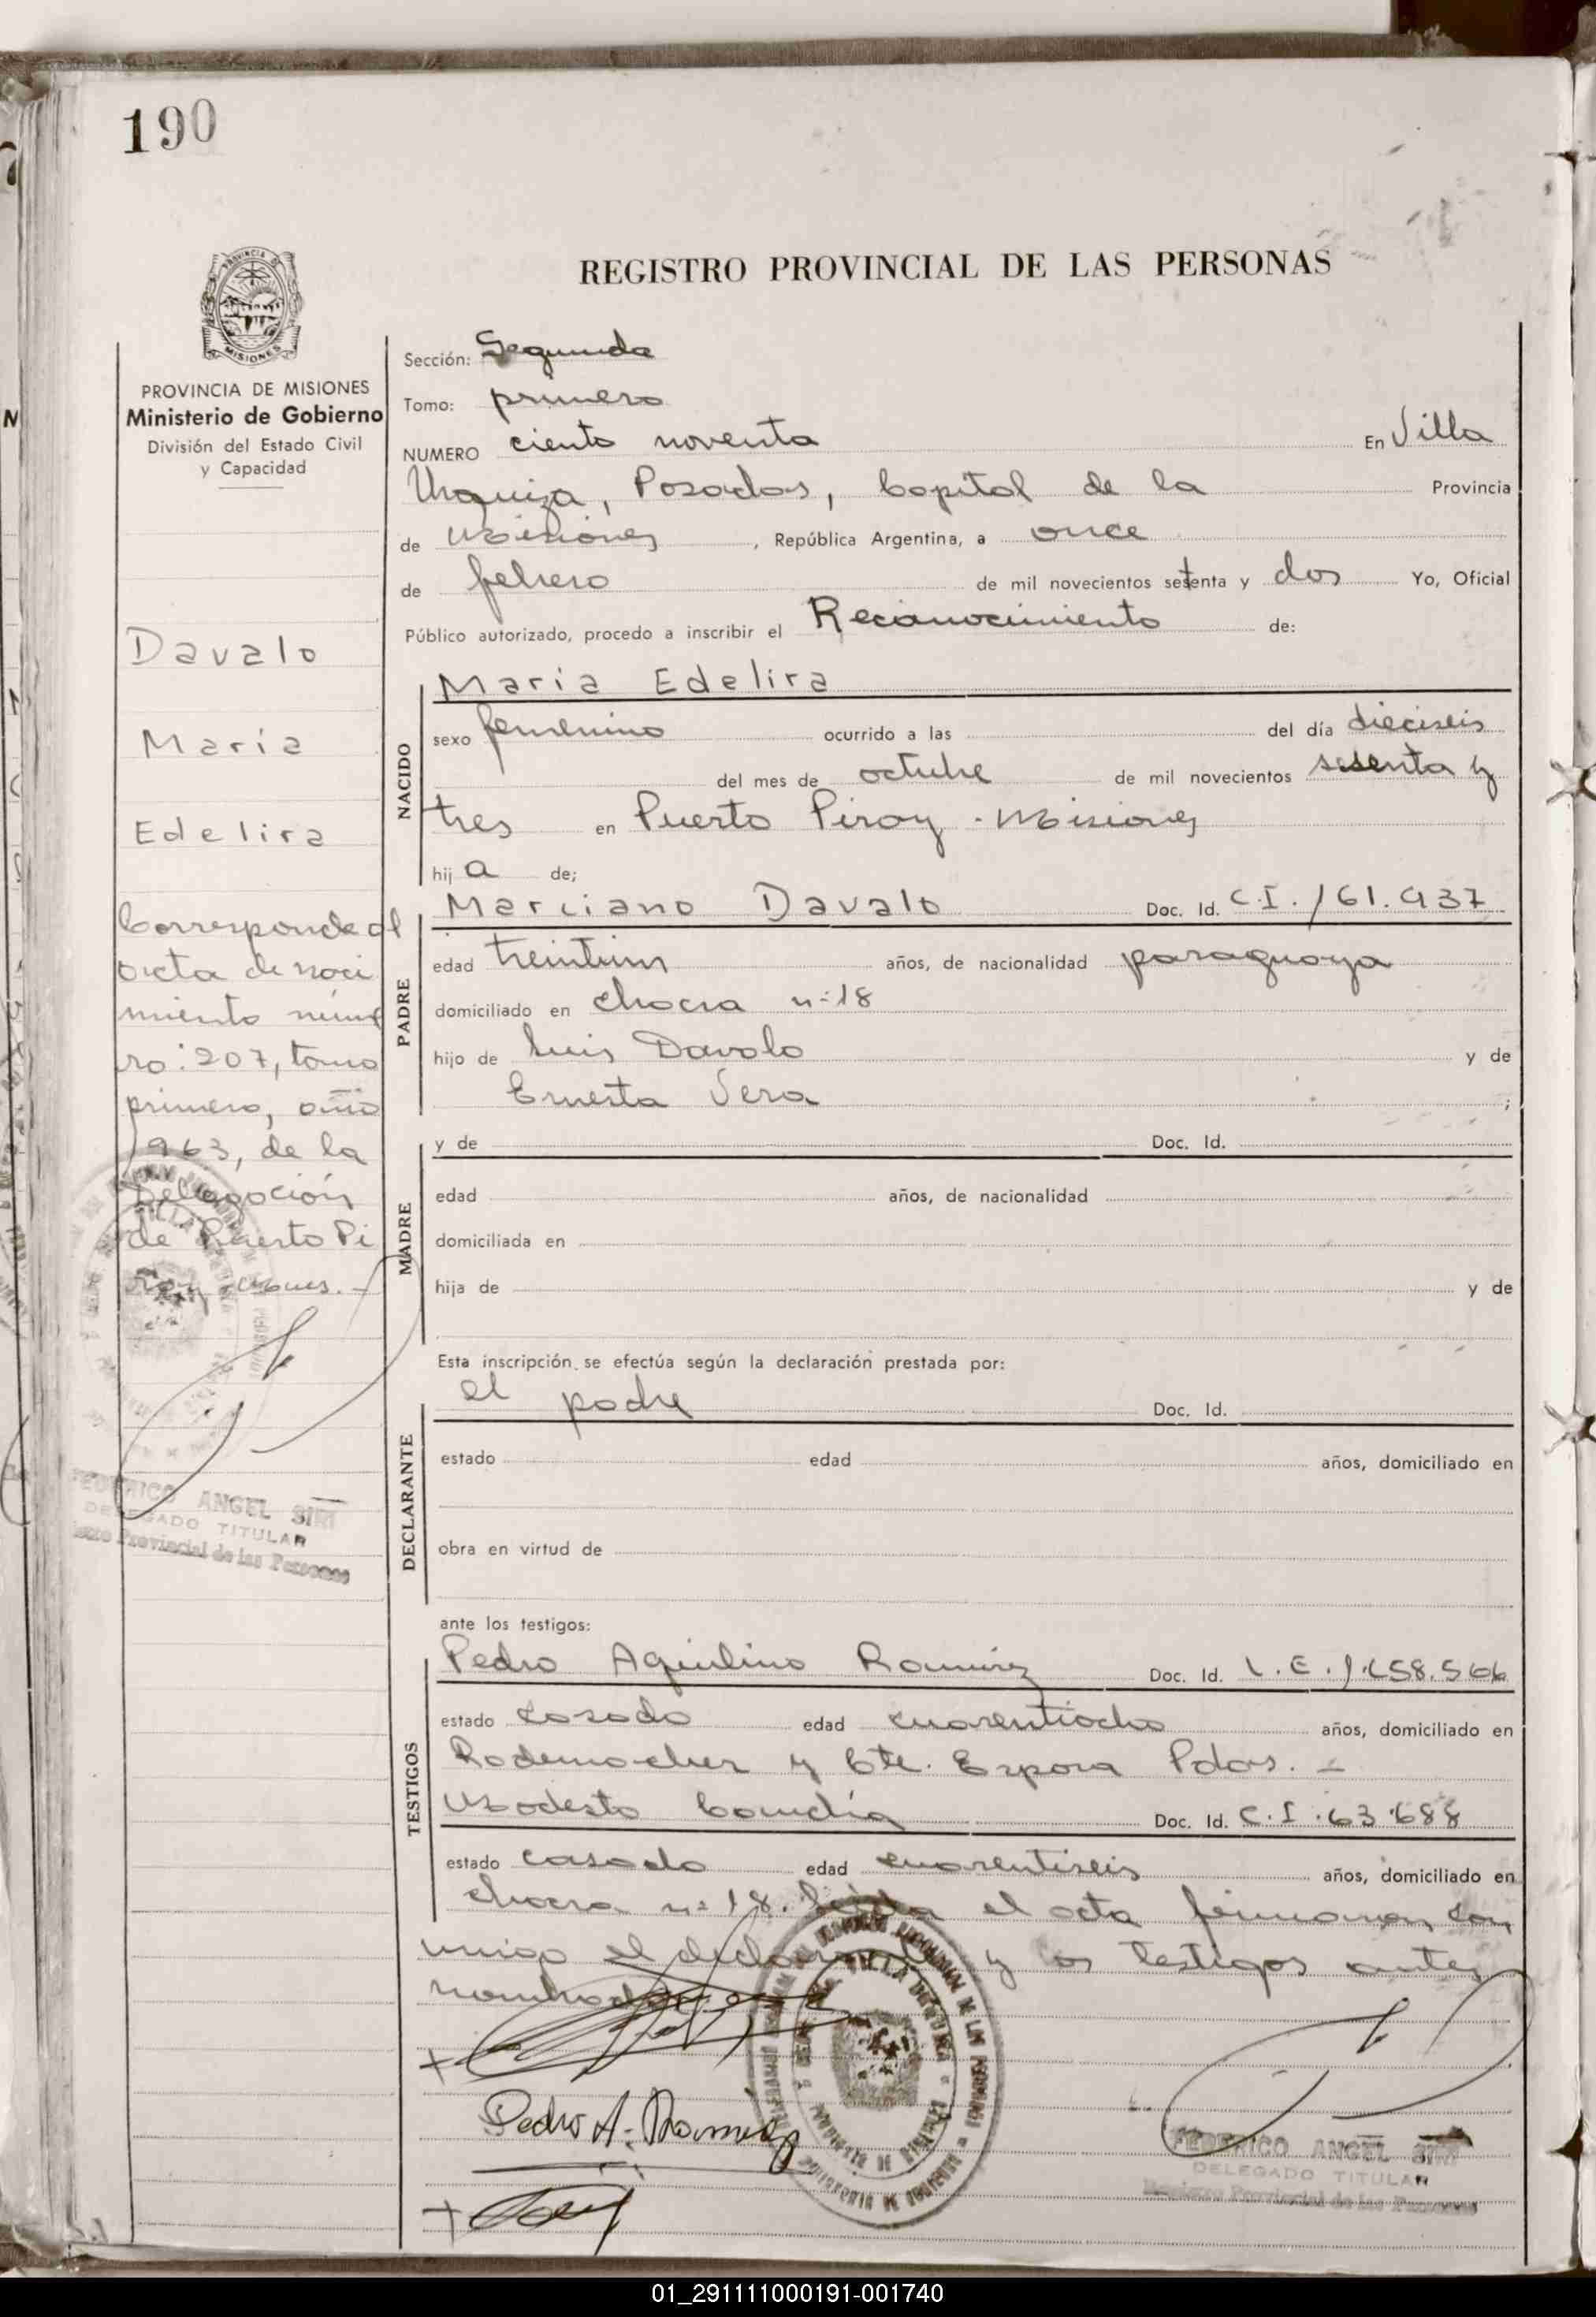 190
REGISTRO PROVINCIAL DE LAS PERSONAS
PROVINCIA DE MISIONES
Ministerio de Gobierno
División del Estado Civil
y Capacidad
Davalo
María
Edelira
Corresponde al
acta de naci
miento núme
ro: 207, tomo
primero, año
1963, de la
Delegación
de Puerto Pi
ray
FEDERICO ANGEL SIRI
DELEGADO TITULAR
Provincial de las Personas
Sección: Segunda
Tomo: primero
NUMERO ciento noventa En Villa
Urquiza, Posadas, Capital de la Provincia
de Misiones, República Argentina, a once
de febrero de mil novecientos setenta y dos Yo, Oficial
Público autorizado, procedo a inscribir el Reconocimiento de:
NACIDO
María Edelira
sexo femenino ocurrido a las del día dieciseis
del mes de octubre de mil novecientos sesenta y
tres en Puerto Piray - Misiones
hij a de;
PADRE
Marciano Davalo Doc. Id. C.I. 161.937
edad treintiun años, de nacionalidad paraguaya
domiciliado en chacra n=18
hijo de Luis Davalo y de
Ernesta Vera ;
MADRE
y de Doc. Id.
edad años, de nacionalidad
domiciliada en
hija de y de
Esta inscripción se efectúa según la declaración prestada por:
DECLARANTE
el padre Doc. Id.
estado edad años, domiciliado en
obra en virtud de
ante los testigos:
TESTIGOS
Pedro Aquilino Ramírez Doc. Id. L.E. 1.658.566
estado casado edad cuarentiocho años, domiciliado en
Rademacher y Cte. Espora Pdas. -
Modesto Doc. Id. C.I. 63.688
estado casado edad cuarentiseis años, domiciliado en
chacra n=18. Leída el acta firmaron con
migo el declarante y los testigos antes
nombrados
Pedro A. Ramírez
FEDERICO ANGEL SIRI
DELEGADO TITULAR
Registro Provincial de las Personas
01_291111000191-001740